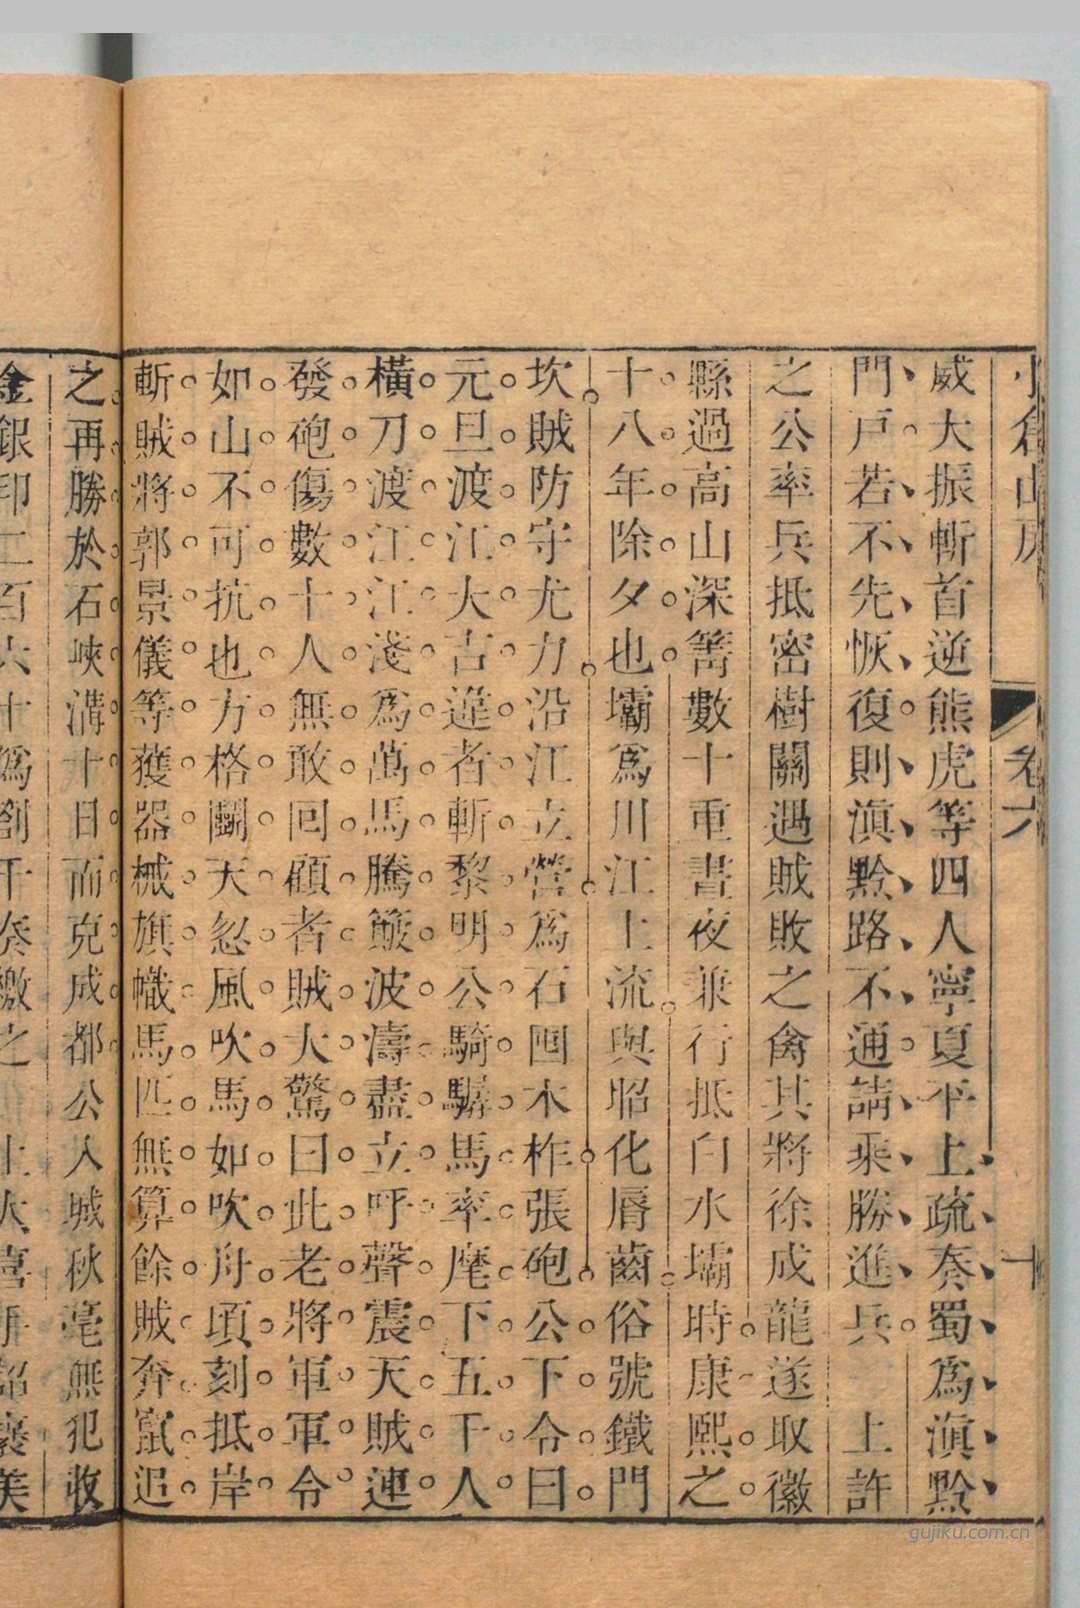 小倉山房 卷六 十
威大振斬首逆熊虎等四人寧夏平上疏奏蜀爲滇黔
門戸若不先恢復則滇黔路不通請乘勝進兵 上許
之公率兵抵密樹關遇賊敗之禽其將徐成龍遂取徽
縣過高山深箐數十重晝夜兼行抵白水壩時康熙之
十八年除夕也壩爲川江上流與昭化唇齒俗號鐵門
坎賊防守尤力沿江立營爲石囤木柞張砲公下令曰
元旦渡江大吉違者斬黎明公騎驏馬率麾下五千人
橫刀渡江江淺爲萬馬騰簸波濤盡立呼聲震天賊連
發砲傷數十人無敢回顧者賊大驚曰此老將軍軍令
如山不可抗也方格鬭天忽風吹馬如吹舟頃刻抵岸
斬賊將郭景儀等獲器械旗幟馬匹無算餘賊奔竄追
之再勝於石峽溝十日而克成都公入城秋毫無犯收
金銀印二百六十爲劄千奏繳之 上大喜手詔襃美
gujiku.com.cn